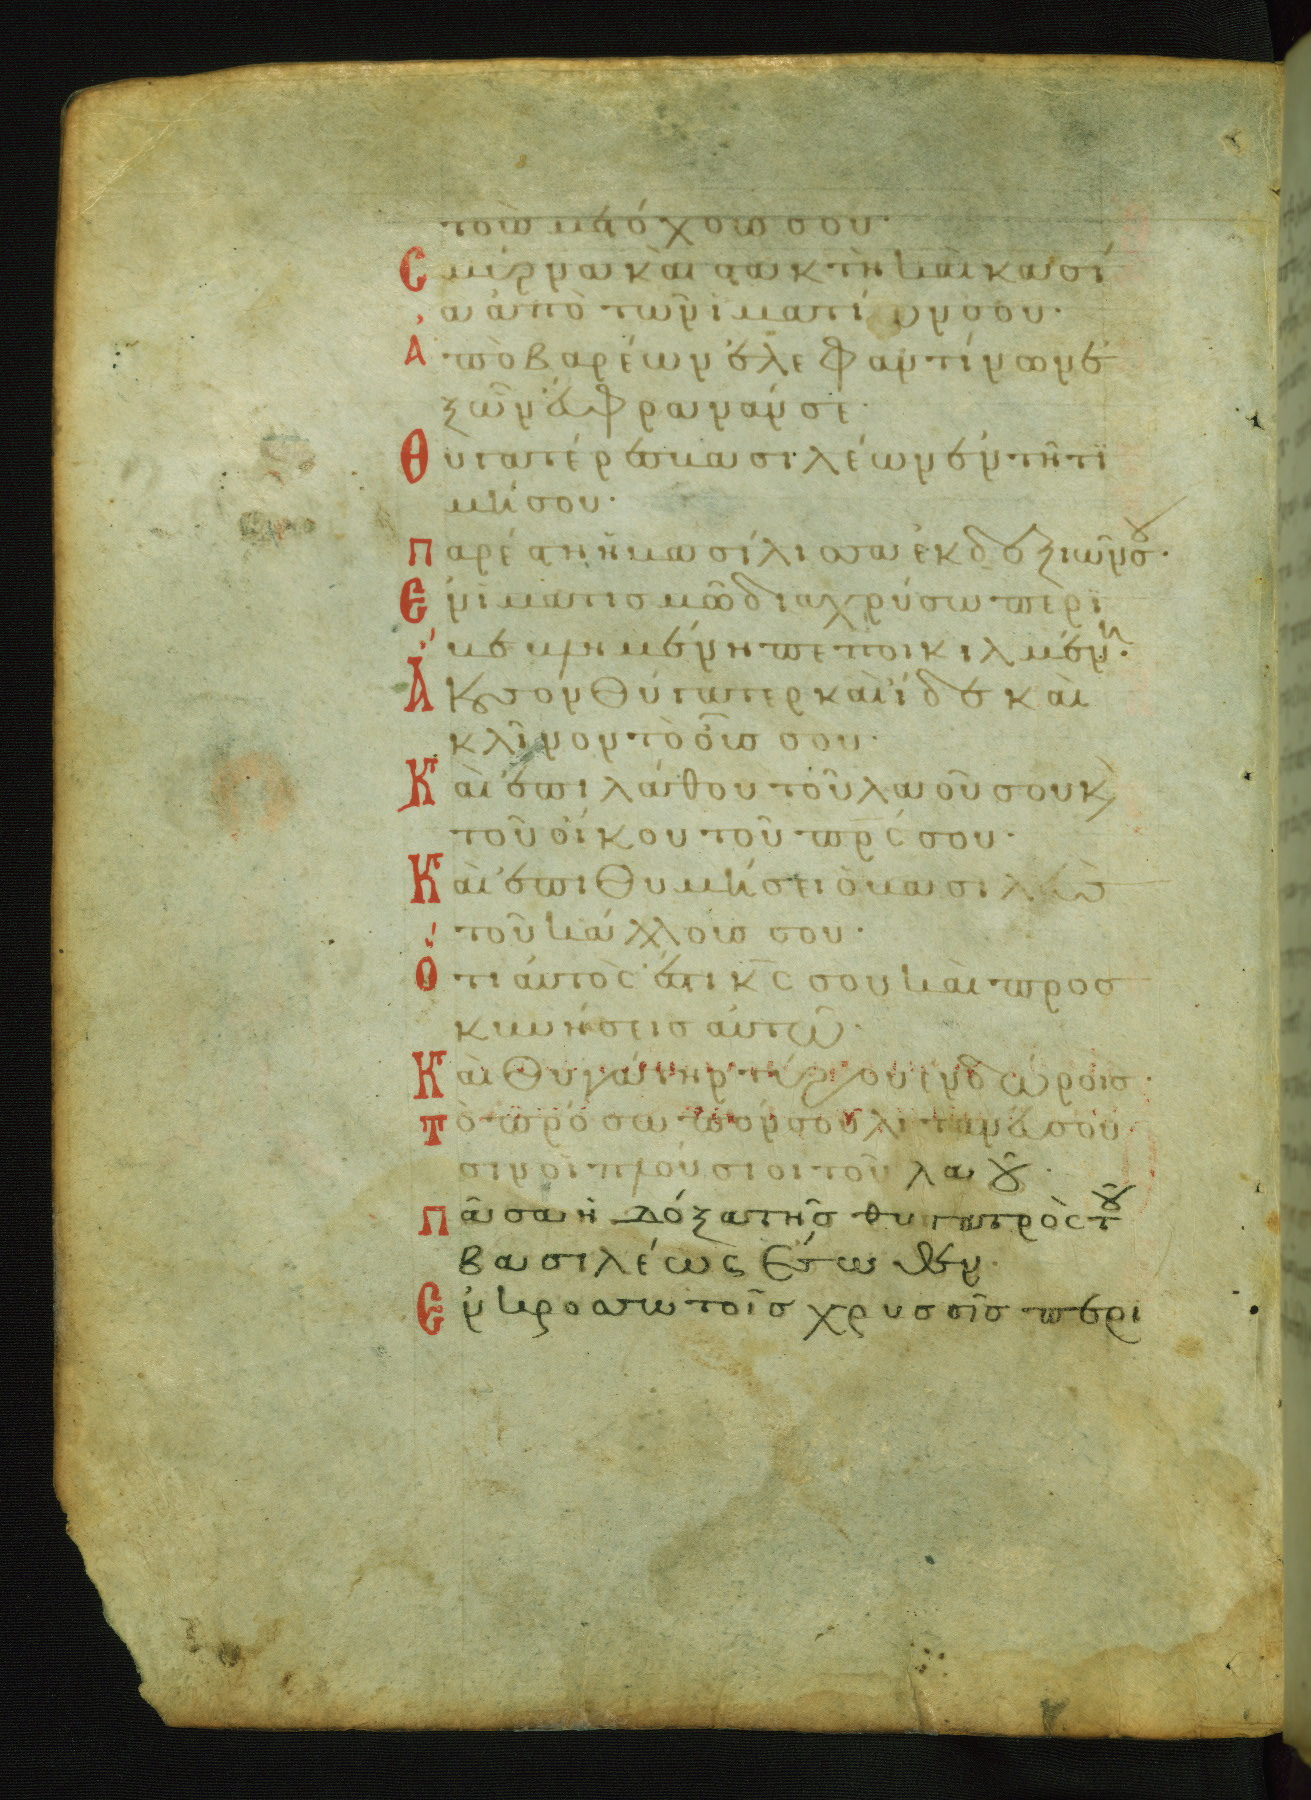 τοὺς μετόχους σου·
Σμύρνα καὶ στακτὴ καὶ κασί
α ἀπὸ τῶν ἱματίων σου·
Ἀπὸ βαρέων ἐλεφαντίνων ἐ
ξ ὧν εὔφρανάν σε·
Θυγατέρες βασιλέων ἐν τῆ τι
μῆ σου·
Παρέστη ἡ βασίλισσα ἐκ δεξιῶν σου·
Ἐν ἱματισμῶ διαχρύσω περι
βεβλημένη πεποικιλμένη·
Ἄκουσον θύγατερ καὶ ἴδε καὶ
κλῖνον τὸ οὖς σου·
Καὶ ἐπιλάθου τοῦ λαοῦ σου κ̀
τοῦ οἴκου τοῦ πρς σου·
Καὶ ἐπιθυμήσει ὁ βασιλεὺς
τοῦ κάλλους σου·
Ὅτι αὐτός ἐστι κς σου καὶ προσ
κυνήσεις αὐτῶ·
Καὶ θυγάτηρ τύρου ἐν δώροις·
Τὸ πρόσωπόν σου λιτανεύσου
σιν οἱ πλούσιοι τοῦ λαοῦ·
Πᾶσα ἡ δόξα τῆς θυγατρὸς τοῦ
βασιλέως ἔσωθεν·
Ἐν κροσσωτοῖς χρυσοῖς περι